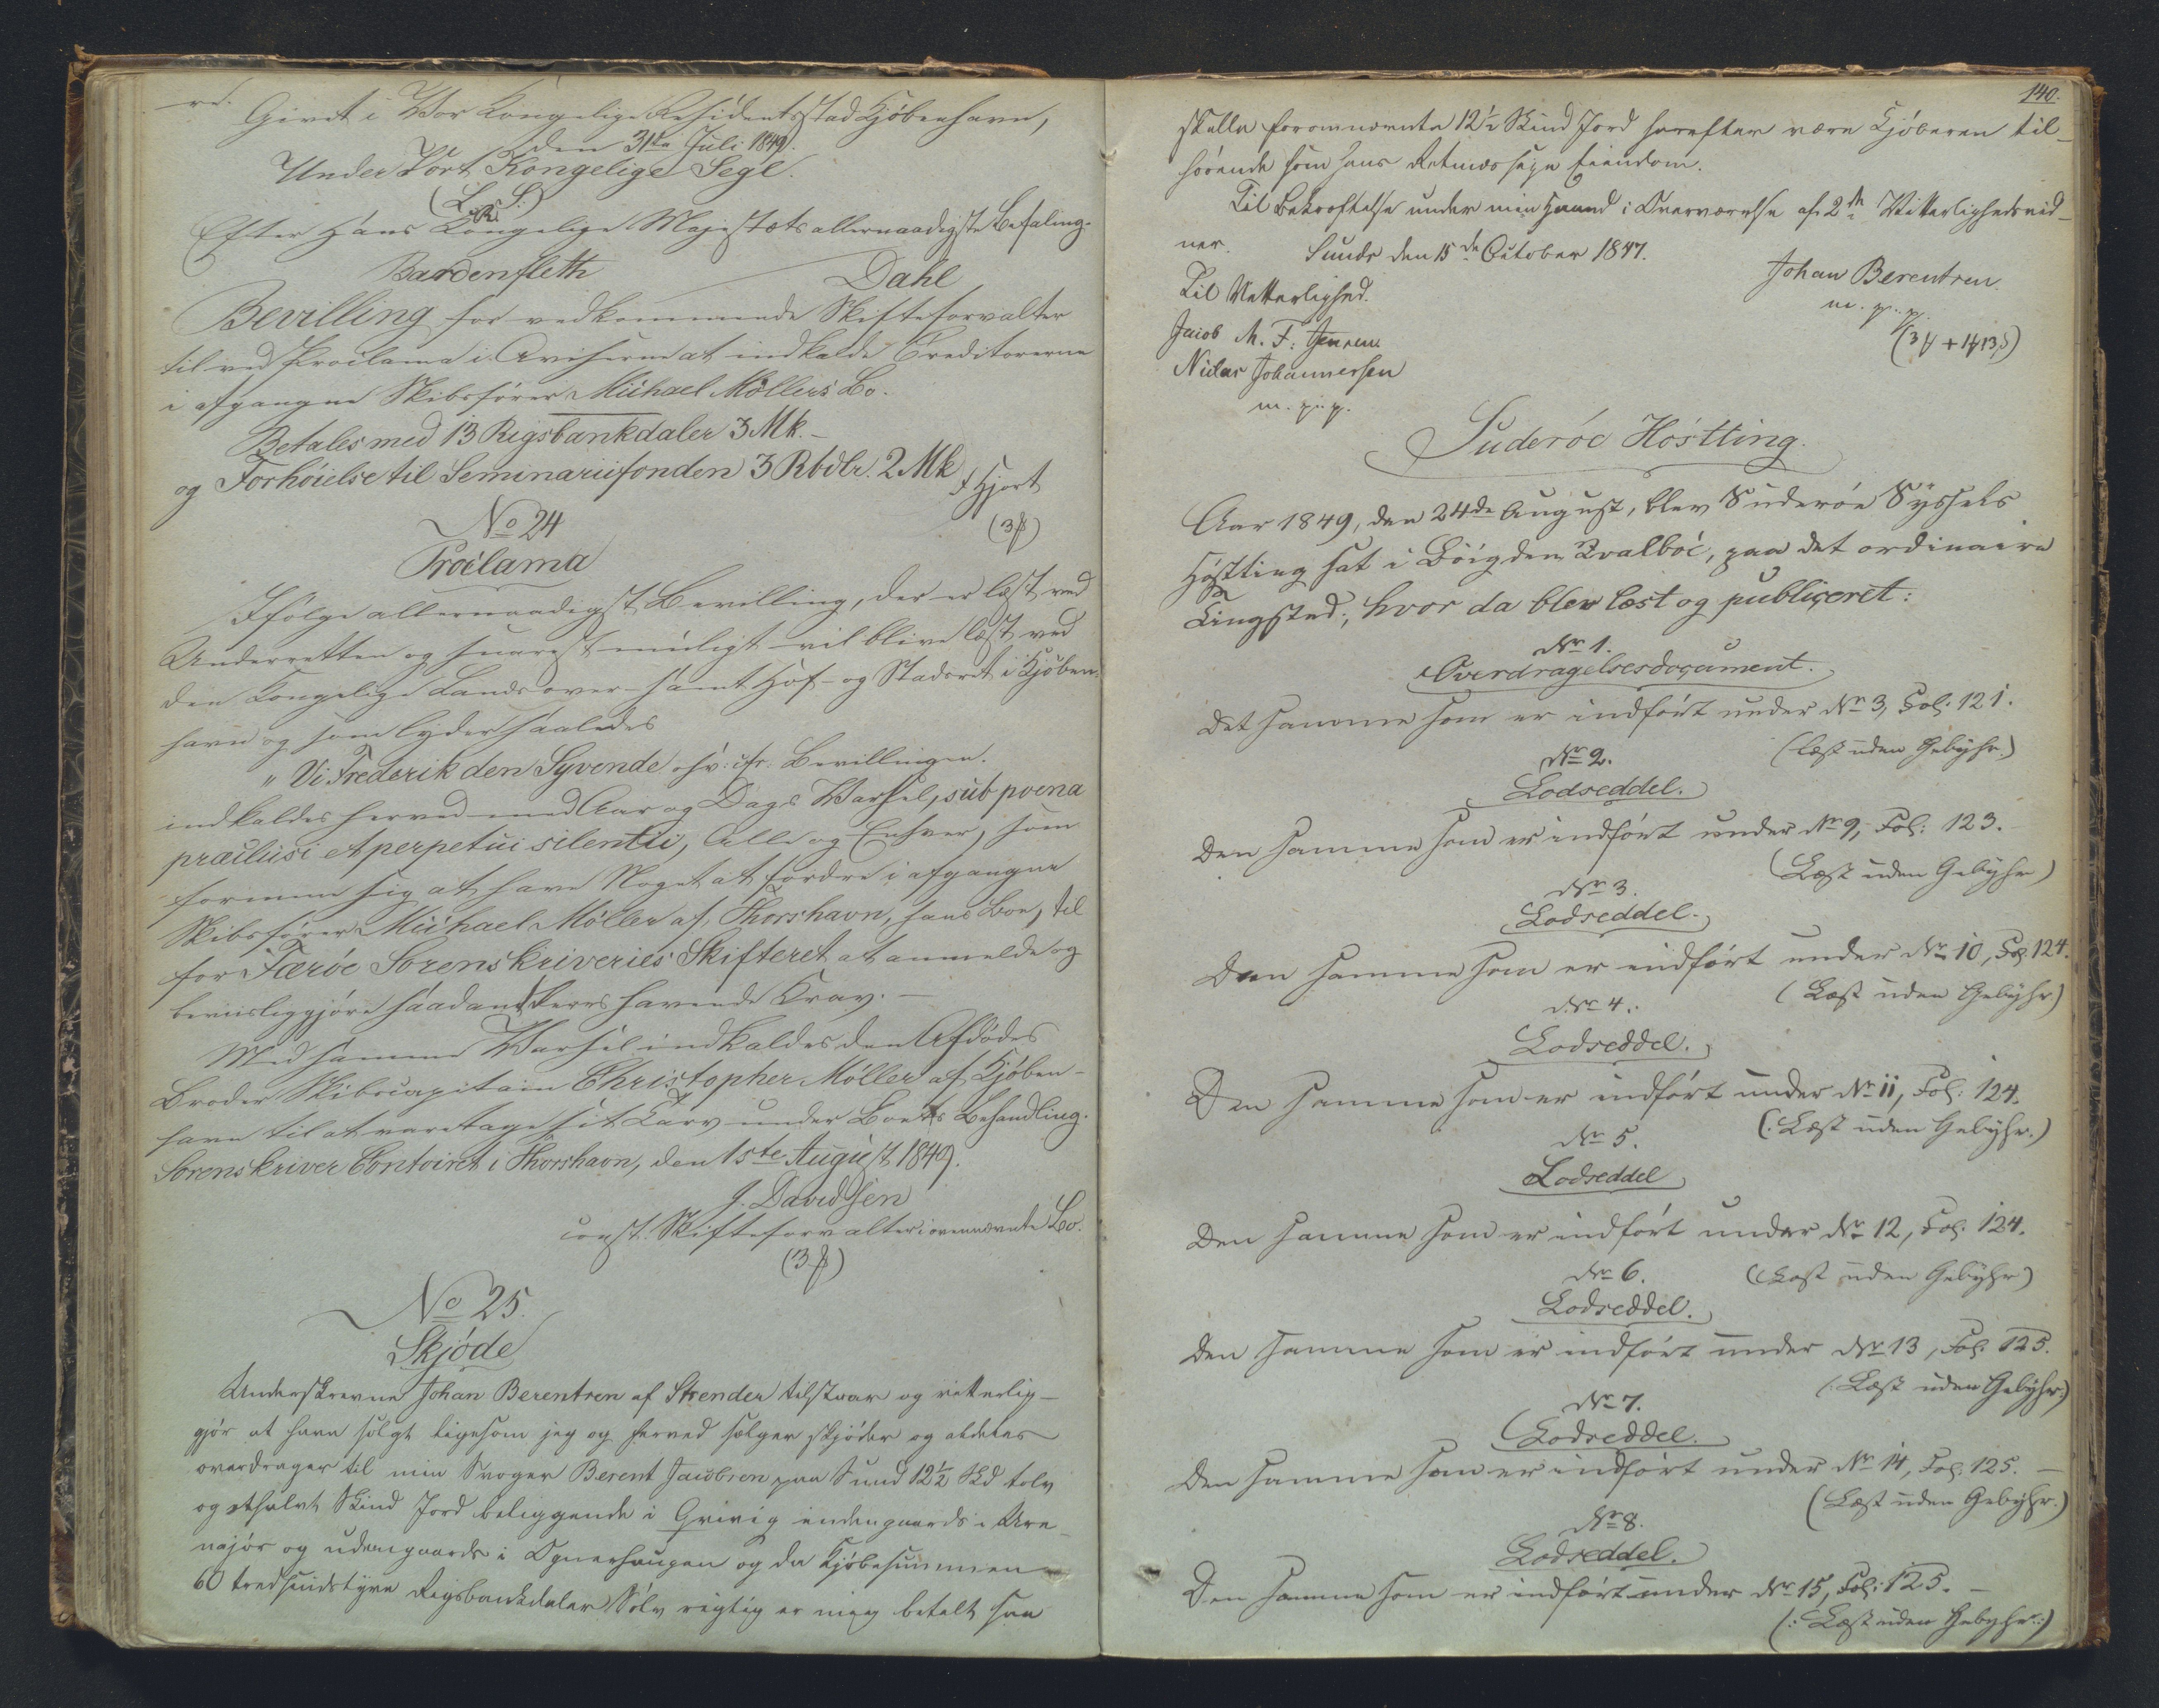 Givet i Vor Kongelige Residentsstad Kjöbenhavn,
den 31te Juli 1849.
Under Vort Kongelige Segl.
(L. S.)
Efter Hans Kongelige Majestæts allernaadigste Befaling.
Bardenfleth Dahl
Bevilling for vedkommende Skifteforvalter
til ved Proclama i Aviserne at indkalde Creditorerne
i afgangne Skibsfører Michael Möllers Bo.
Betales med 13 Rigsbankdaler 3 Mk. –
og Forhöielse til Seminariifonden 3 Rbdlr. 2 Mk
Hjort
No 24 (3 ß)
Proclama
Ifölge allernaadigst Bevilling, der er læst ved
Underretten og snarest muligt vil blive læst ved
den Kongelige Landsover- samt Hof- og Stadsret i Kjöben-
havn og som lyder saaledes
"Vi Frederik den Syvende osv: cfr. Bevillingen.
indkaldes herved med Aar og Dags Varsel, sub poena
præclusi et perpetui silentii, Alle og Enhver, som
formene sig at have Noget at fordre i afgangne
Skibsfører Michael Möller af Thorshavn, hans Bo, til
for Færöe Sorenskriveries Skifteret at anmelde og
beviisliggjöre saadanne deres havende Krav. –
Med samme Varsel indkaldes den Afdödes
Broder Skibscapitain Christopher Möller af Kjöben-
havn til at varetage sit Tarv under Boets Behandling.
Sorenskriver Contoiret i Thorshavn, den 1ste August 1849.
J. Davidsen
const. Skifteforvalter i ovennævnte Bo.
(3 ß)
No 25.
Skjöde
Underskrevne Johan Berentsen af Strender tilstaar og vitterlig-
gjör at have solgt ligesom jeg og herved sælger skjöder og aldeles
overdrager til min Svoger Berent Jacobsen paa Sund 12½ Skd tolv
og ethalvt Skind Jord beliggende i Grivig indengaards i Ura-
najör og udengaards i Ognerhaugen og da Kjöbesummen
60 tredsindstyve Rigsbankdaler Sölv rigtig er mig betalt saa
140.
skulle forommeldte 12½ Skind Jord herefter være Kjöberen til-
hörende som hans Retmæssige Eiendom.
Til Bekræftelse under min Haand i Overværelse af 2de Vitterlighedsvid-
ner. Sunds den 15de October 1847.
Johan Berentsen.
m. p. p.
Til Vitterlighed. (3 ß + 1 ß 13 ß)
Jacob M. F. Jensen
Niclas Johannessen
m. p. p.
Suderöe Höstting.
Aar 1849, den 24de August, blev Suderöe Syssels
Höstting sat i Böigden Qvalböe, paa det ordinaire
Tingsted; hvor da blev læst og publiceret:
No 1.
Overdragelsesdocument.
Det samme som er indfört under No 3, Fol: 121.
(læst uden Gebyhr.)
No 2.
Lodseddel.
Den samme som er indfört under No 9, Fol: 123.
(Læst uden Gebyhr)
No 3.
Lodseddel.
Den samme som er indfört under No 10, Fol. 124.
(Læst uden Gebyhr.)
No 4.
Lodseddel.
Den samme som er indfört under No 11, Fol: 124.
(: Læst uden Gebyhr.)
No 5.
Lodseddel
Den samme som er indfört under No 12, Fol. 124.
(Læst uden Gebyhr)
No 6.
Lodseddel.
Den samme som er indfört under No 13, Fol. 125.
(: Læst uden Gebyhr:)
No 7.
Lodseddel.
Den samme som er indfört under No 14, Fol. 125. –
(Læst uden Gebyhr.)
No 8.
Lodseddel.
Den samme som er indfört under No 15, Fol: 125. –
(: Læst uden Gebyhr:)